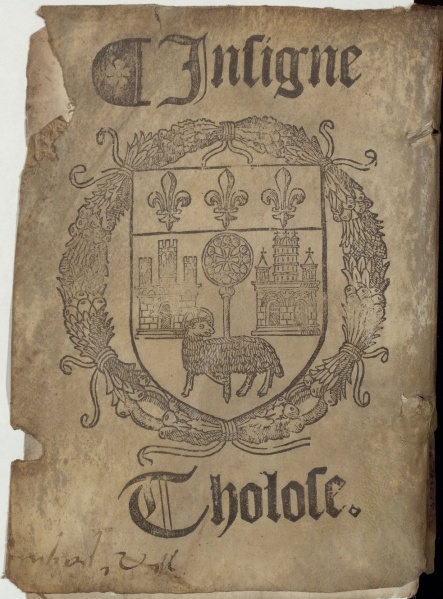 ⸿ Inſigne
Tholoſe.